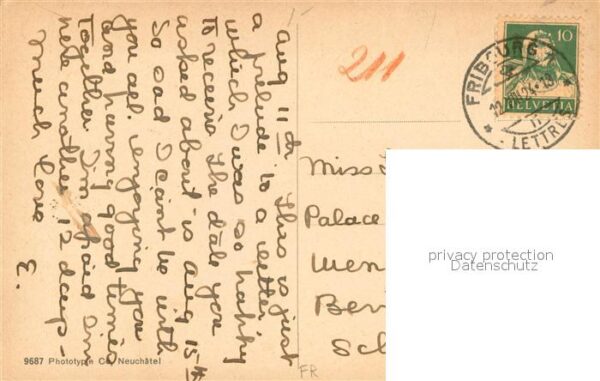 Aug 11th This is just
a prelude to a letter
which I was so happy
to receive. The date you
asked about is Aug 15th
So sad I cant be with
you all. enjoying you
and having good times
together I'm afraid I'm
here another 12 days -
Much love
3.
211
10
FRIBOURG 1
LETTRES
HELVETIA
Miss
Palace
Wen
Ber
Sch
privacy protection
Datenschutz
9687 Phototypie Co. Neuchâtel
FR